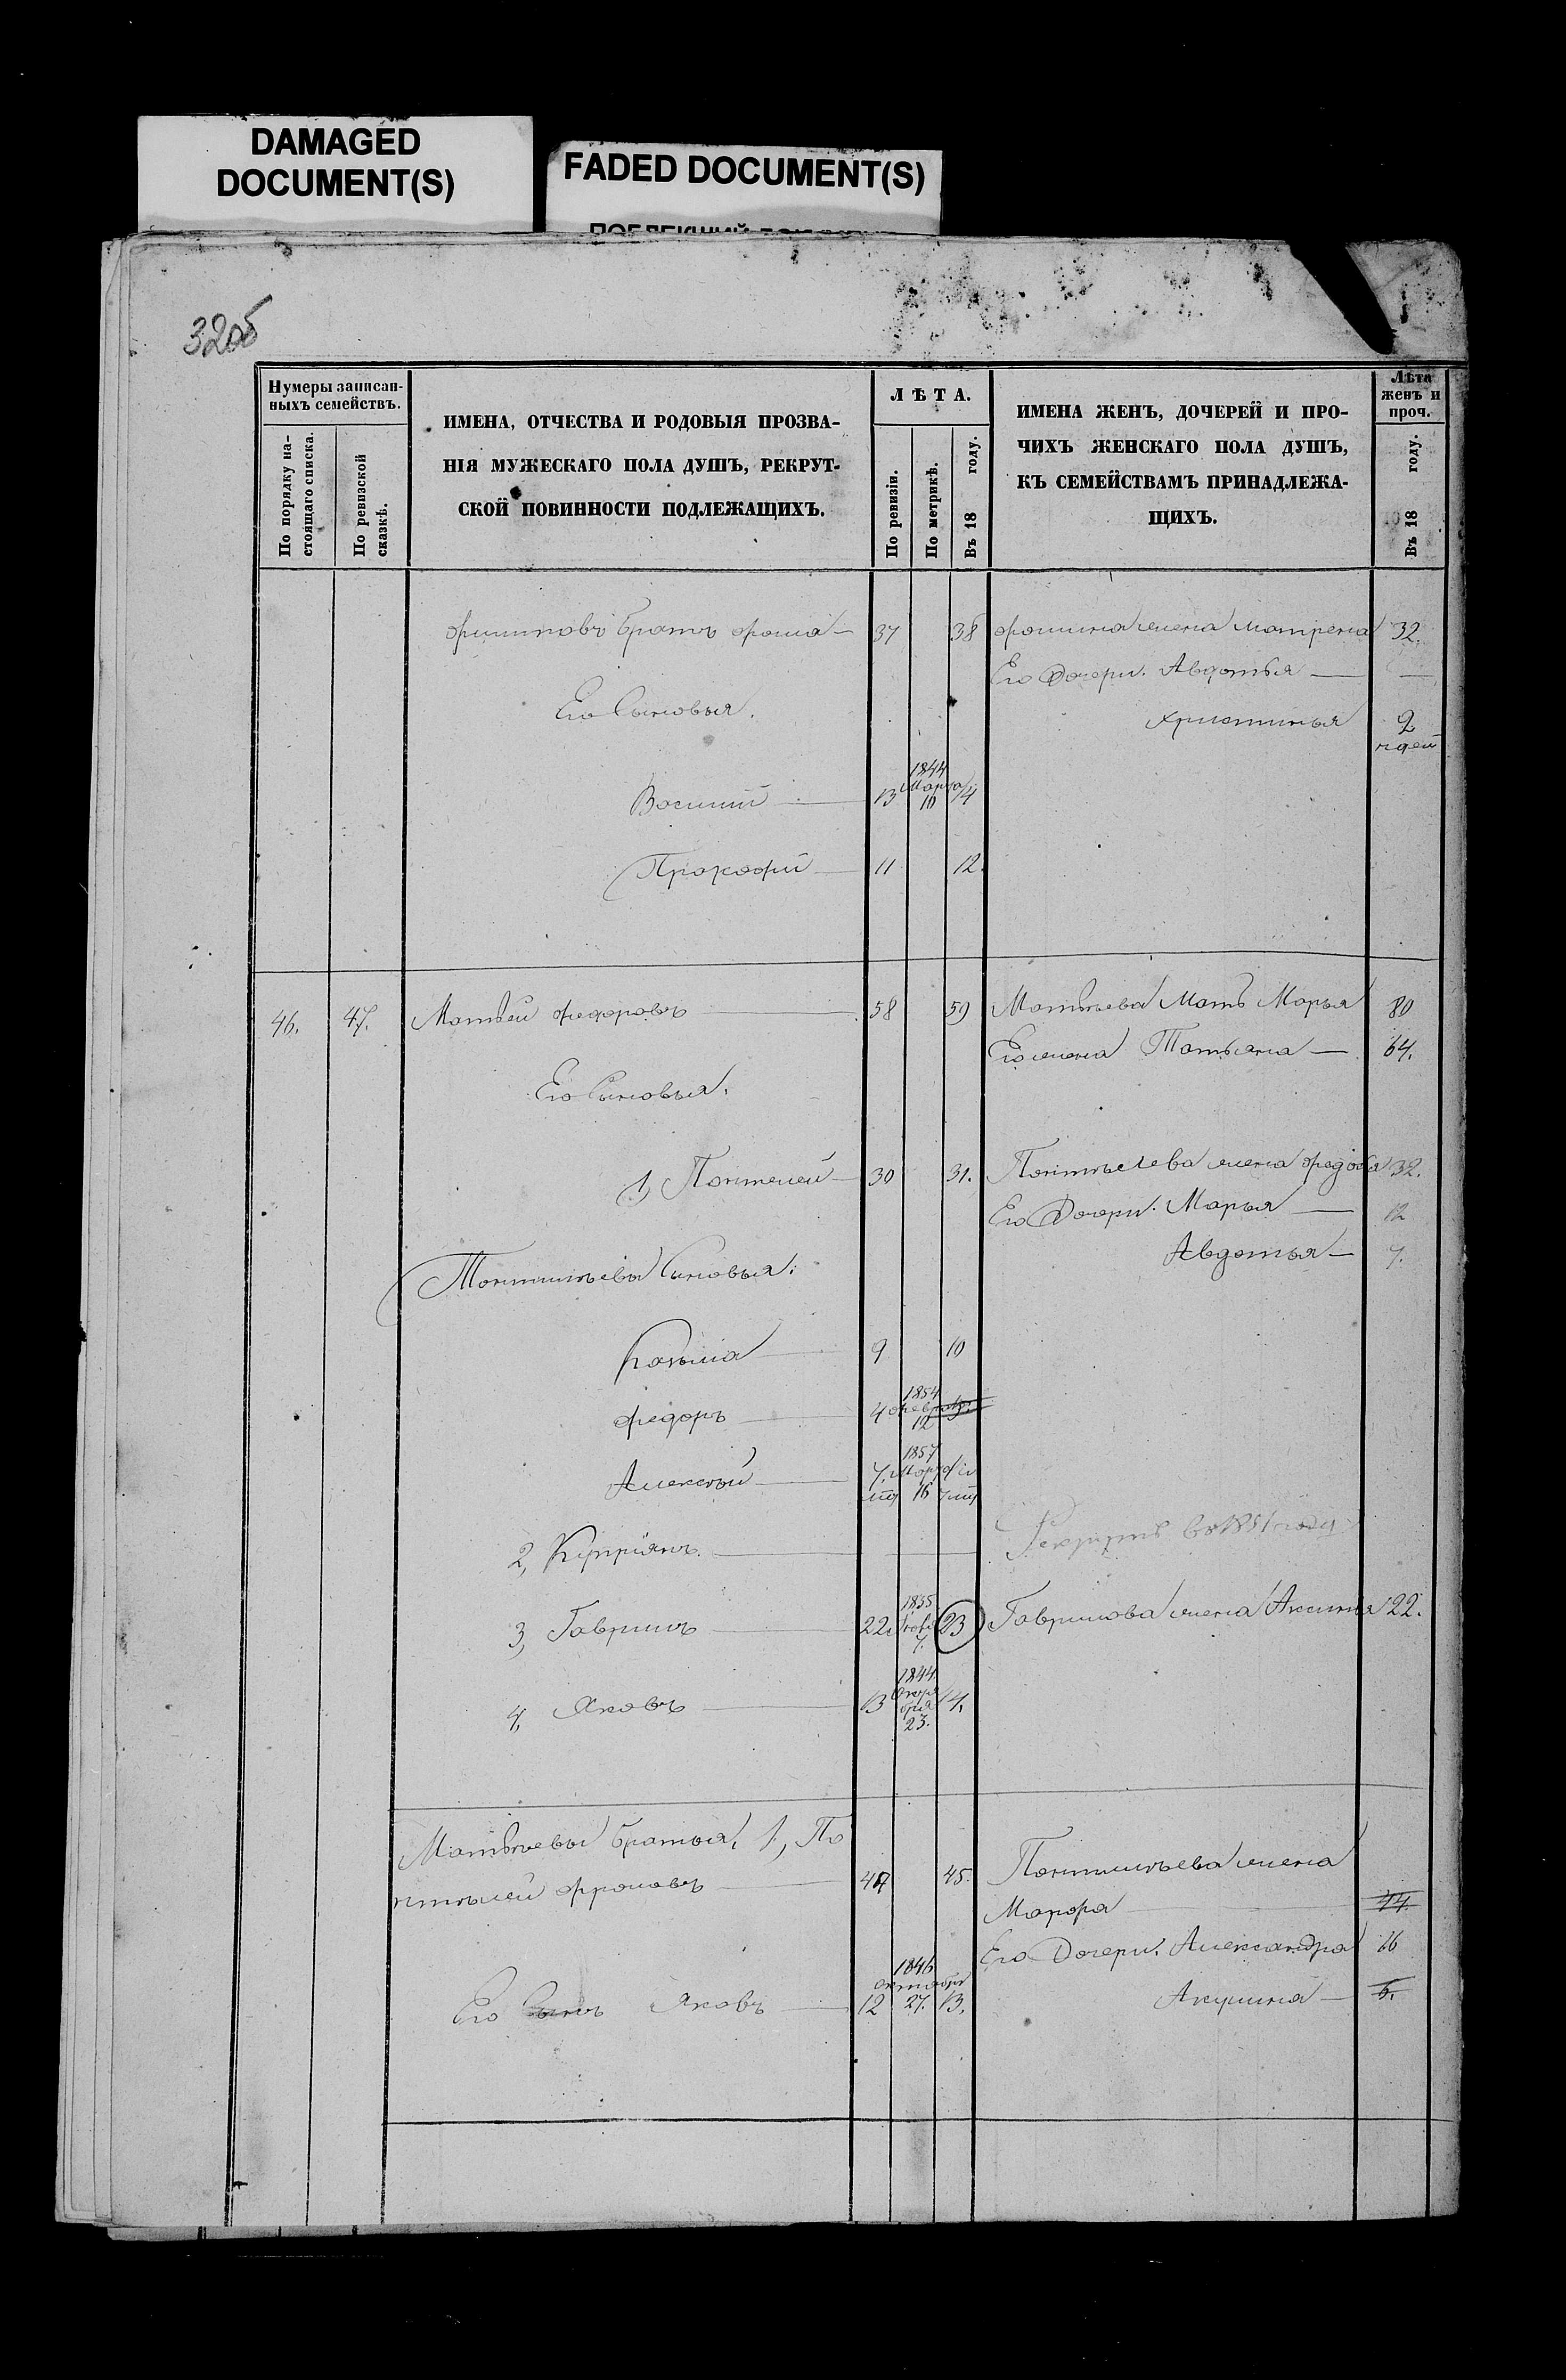 DAMAGED
DOCUMENT(S)
FADED DOCUMENT(S)
32об
Нумеры записан-
ныхъ семействъ.
По порядку на-
стоящаго списка.
По ревизской
сказкѣ.
ИМЕНА, ОТЧЕСТВА И РОДОВЫЯ ПРОЗВА-
НІЯ МУЖЕСКАГО ПОЛА ДУШЪ, РЕКРУТ-
СКОЙ ПОВИННОСТИ ПОДЛЕЖАЩИХЪ.
ЛѢТА.
По ревизіи.
По метрикѣ.
Въ 18 году.
ИМЕНА ЖЕНЪ, ДОЧЕРЕЙ И ПРО-
ЧИХЪ ЖЕНСКАГО ПОЛА ДУШЪ,
КЪ СЕМЕЙСТВАМЪ ПРИНАДЛЕЖА-
ЩИХЪ.
Лѣта
женъ и
проч.
Въ 18 году.
братъ Фома 37 38 Фомина жена Матрена 32.
Его Дочери. Авдотья
Его Сыновья.
Христинья 2
1844
Василий 13 Марта 10 14
Прокофий 11 12.
46. 47. Матвей Федоровъ 58 59 Матвѣева Мать Марья 80
Его жена Татьяна 64.
Его Сыновья.
1, Пантелей 30 31. Пантелева жена Федосья 32.
Его Дочери. Марья 12
Авдотья 7.
Сыновья:
Козьма 9 10
1854
Федоръ 4 12
1857
Алексѣй 7. Марта 16
2, Купріянъ. Рекрутъ въ 1851 году
1835
3, Гаврилъ 22. 7. 23 Гаврилова жена Аксинья 22.
1844
4, Яковъ 13 23. 14.
Матвѣевы братья, 1, Па
нтелей Фроловъ 44 45. Пантилѣева жена
Марфа 44.
Его Дочери. Александра 16
1846
октября
Его Сынъ Яковъ 12 27. 13.
Акулина 6.